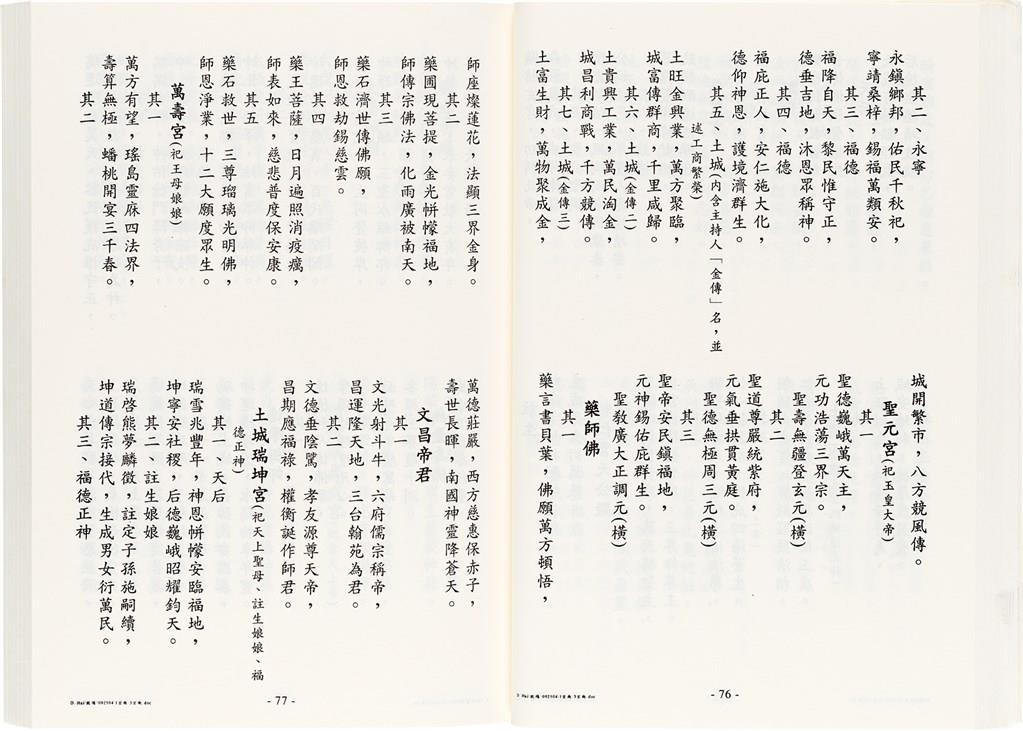 其二、永寧
永鎮鄉邦，佑民千秋祀，
寧靖桑梓，錫福萬類安。
其三、福德
福降自天，黎民惟守正，
德垂吉地，沐恩眾稱神。
其四、福德
福庇正人，安仁施大化，
德仰神恩，護境濟群生。
其五、土城(內含主持人「金傳」名，並
述工商繁榮)
土旺金興業，萬方聚臨，
城富傳群商，千里咸歸。
其六、土城(金傳二)
土貴興工業，萬民淘金，
城昌利商戰，千方競傳。
其七、土城(金傳三)
土富生財，萬物聚成金，
城開繁市，八方競風傳。
聖元宮(祀玉皇大帝)
其一
聖德巍峨萬天主，
元功浩蕩三界宗。
聖壽無疆登玄元(橫)
其二
聖道尊嚴統紫府，
元氣垂拱貫黃庭。
聖德無極周三元(橫)
其三
聖帝安民鎮福地，
元神錫佑庇群生。
聖教廣大正調元(橫)
藥師佛
其一
藥言書貝葉，佛願萬方頓悟，
- 76 -
師座燦蓮花，法顯三界金身。
其二
藥圃現菩提，金光帡幪福地，
師傳宗佛法，化雨廣被南天。
其三
藥石濟世傳佛願，
師恩救劫錫慈雲。
其四
藥王菩薩，日月遍照消疫癘，
師表如來，慈悲普度保安康。
其五
藥石救世，三尊瑠璃光明佛，
師恩淨業，十二大願度眾生。
萬壽宮(祀王母娘娘)
其一
萬方有望，瑤島靈庥四法界，
壽算無極，蟠桃開宴三千春。
其二
萬德莊嚴，西方慈惠保赤子，
壽世長暉，南國神靈降蒼天。
文昌帝君
其一
文光射斗牛，六府儒宗稱帝，
昌運隆天地，三台翰苑為君。
其二
文德垂陰騭，孝友源尊天帝，
昌期應福祿，權衡誕作師君。
土城瑞坤宮(祀天上聖母、註生娘娘、福
德正神)
其一、天后
瑞雪兆豐年，神恩帡幪安臨福地，
坤寧安社稷，后德巍峨昭耀鈞天。
其二、註生娘娘
瑞啓熊夢麟徵，註定子孫施嗣續，
坤道傳宗接代，生成男女衍萬民。
其三、福德正神
- 77 -